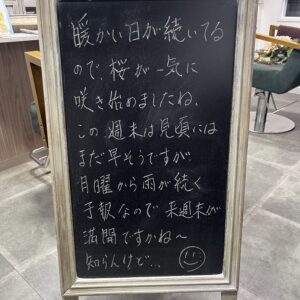 暖かい日が続いてる
ので、桜が一気に
咲き始めましたね、
この週末は見頃には
まだ早そうですが
月曜から雨が続く
予報なので来週末が
満開ですかね〜
知らんけど...